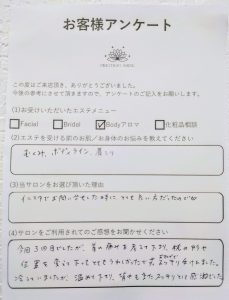 お客様アンケート
この度はご来店頂き、ありがとうございました。
今後の参考にさせて頂きますので、アンケートのご記入をお願いします。
(1)お受けいただいたエステメニュー
Facial Bridal Bodyアロマ 化粧品相談
(2)エステを受ける前のお肌／お身体のお悩みを教えてください
むくみ、ボディライン、肩こり
(3)当サロンをお選び頂いた理由
インスタでお問い合せした時に とても良い方だったので
(4)サロンをご利用されてのご感想をお聞かせください
今回3回目でしたが、首の痛みを 枕の
位置を変えて下ったりとてもうれしかったです
冷えていましたが、温めて下り、背中もまたスッキリと感激でした